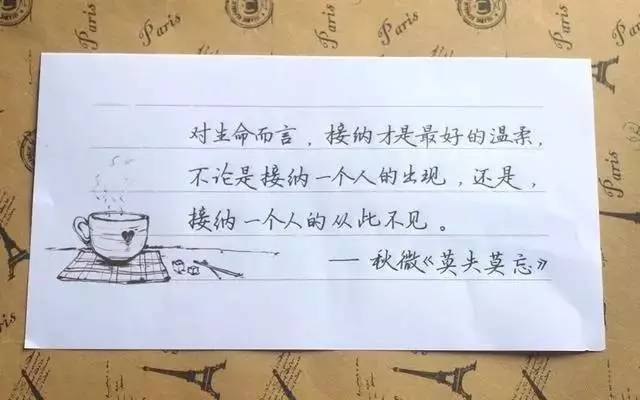 对生命而言，接纳才是最好的温柔，
不论是接纳一个人的出现，还是，
接纳一个人的从此不见。
— 秋微《莫失莫忘》
Paris
Paris
Paris
Paris
Paris
Paris
Paris